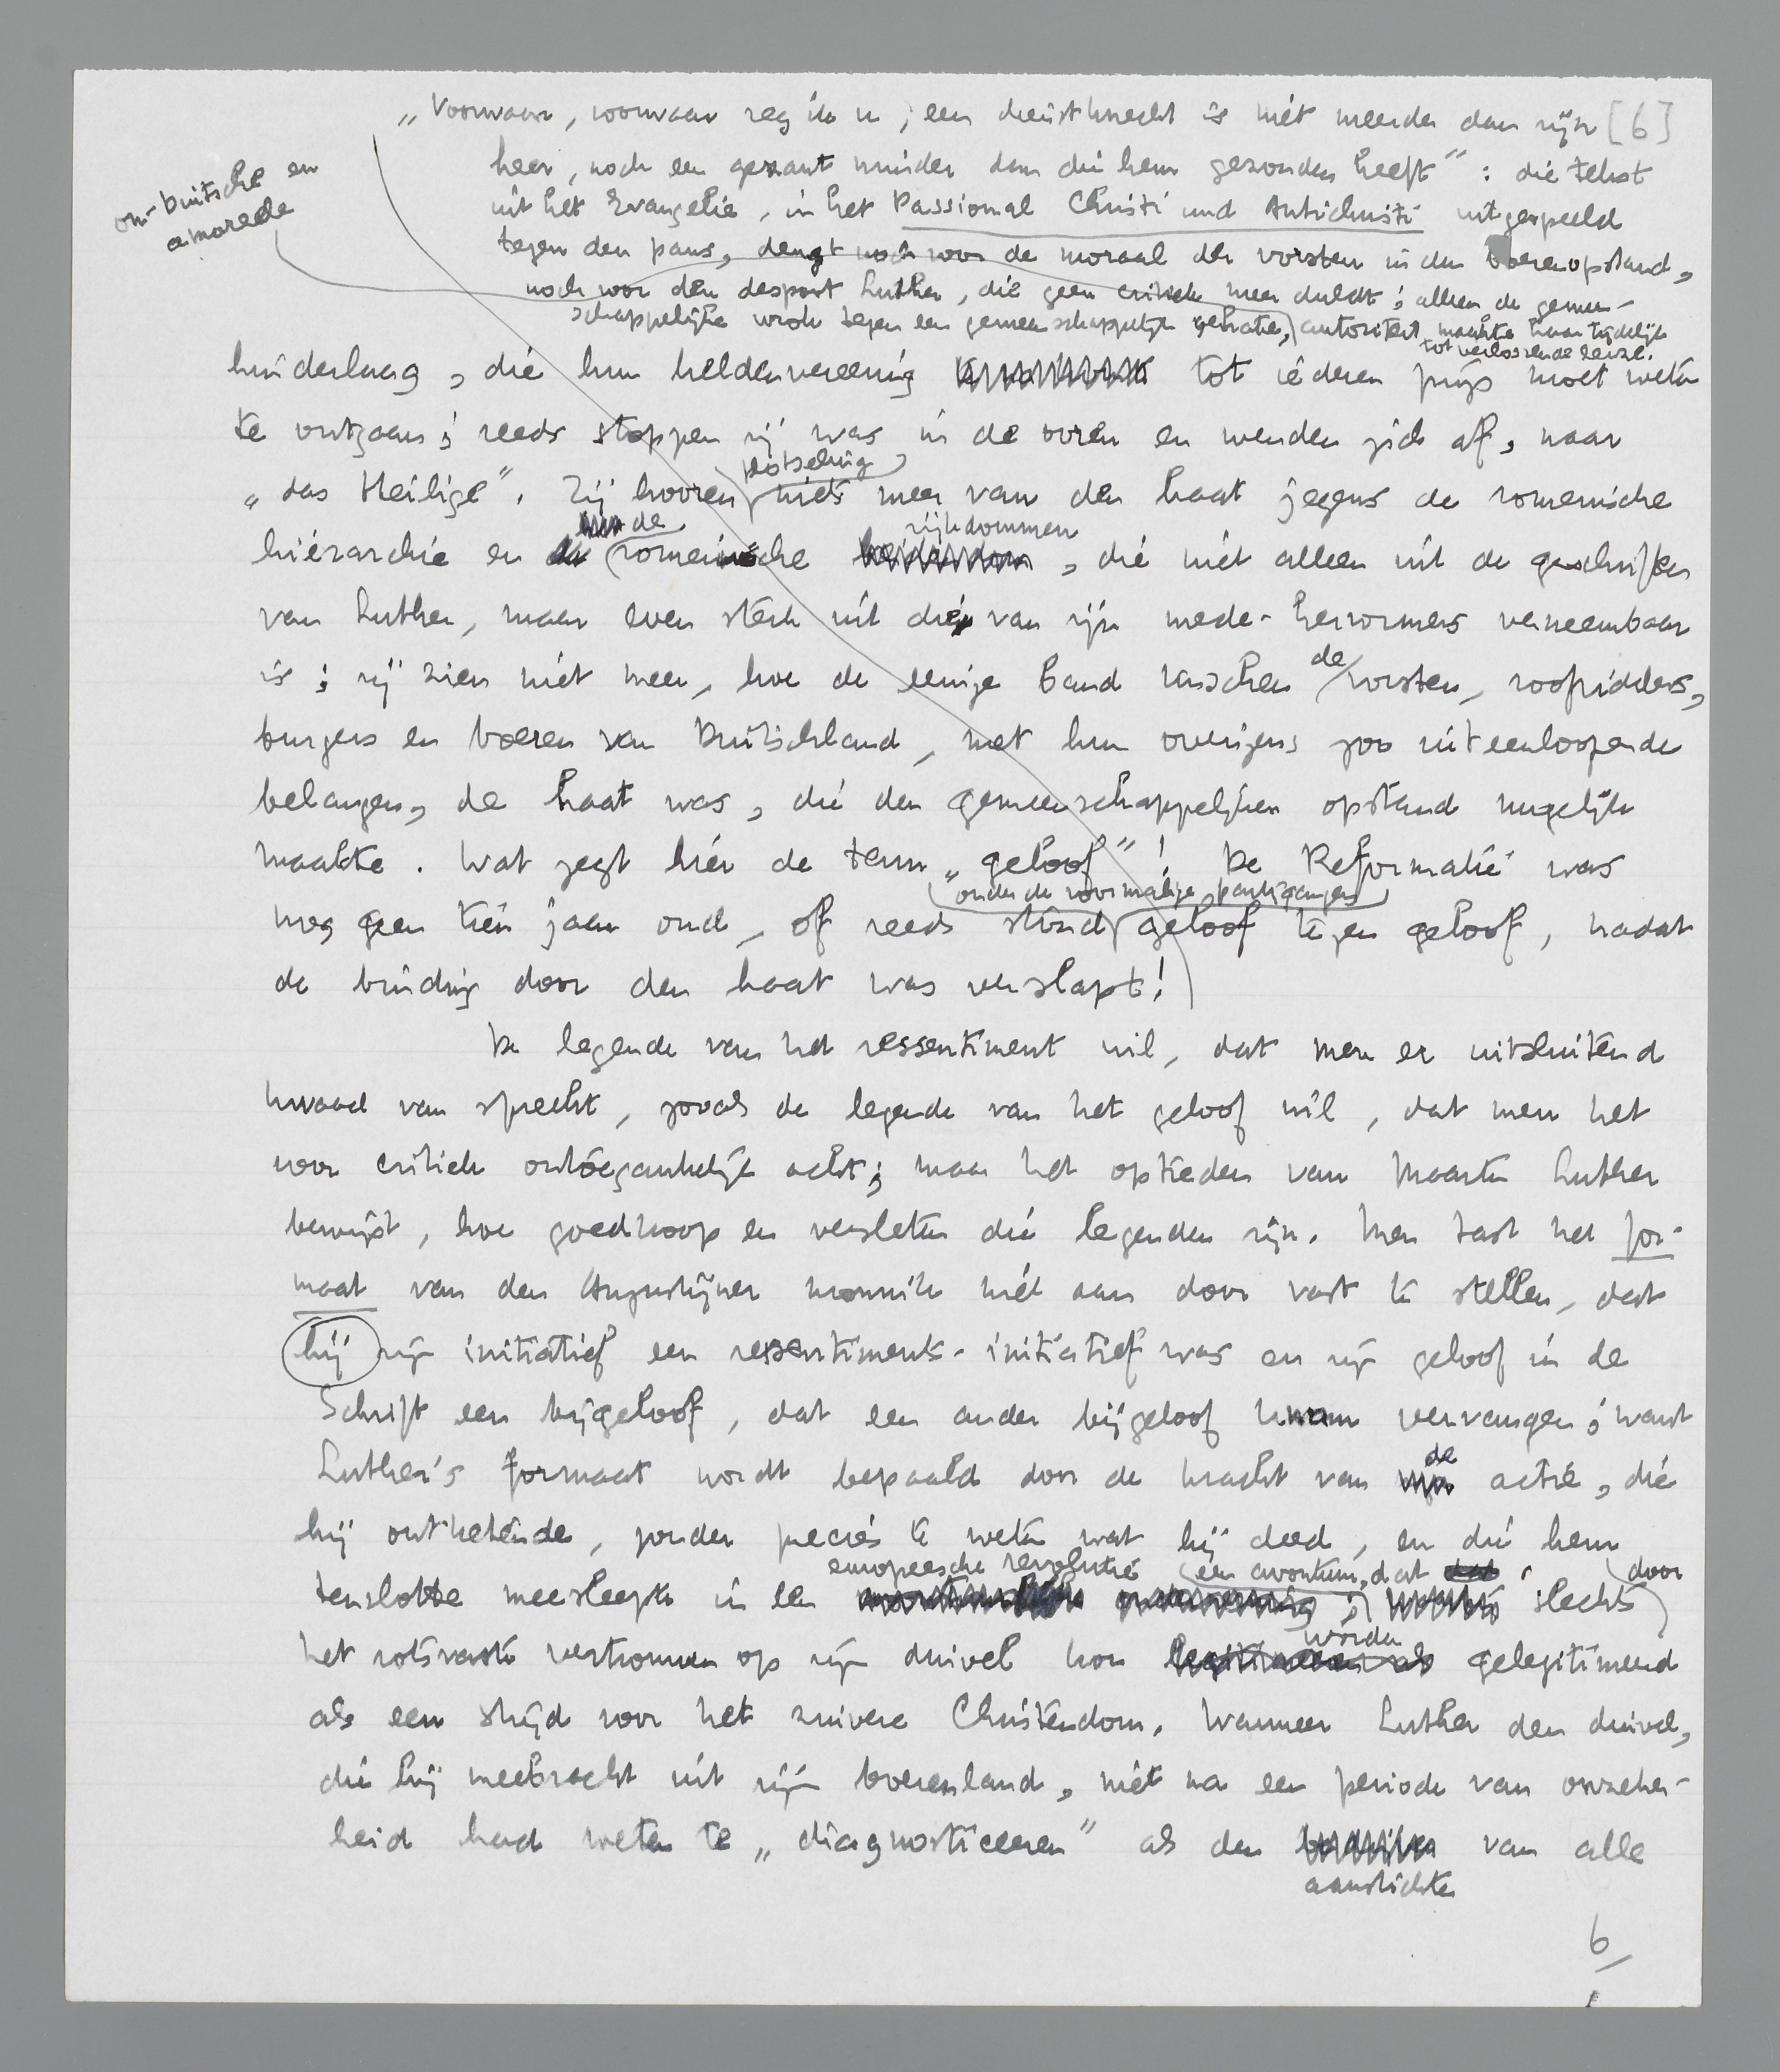 „Voorwaar, voorwaar zeg ik u, een dienstknecht is niet meerder dan zijn [6]
heer, noch een gezant minder dan die hem gezonden heeft": die tekst
uit het Evangelie, in het Passional Christi und Antichristi uitgespeeld
on-Duitsche en
amoreele
tegen den paus, deugt noch voor de moraal der vorsten in den boerenopstand,
noch voor den despoot Luther, die geen critiek meer duldt; alleen de gemeen-
schappelijke wrok tegen een gemeenschappelijke gehate, autoriteit maakte haar tijdelijk
tot verlossende leuze.
hinderlaag, die hun heldenvereering tot iederen prijs moet weten
te ontgaan; reeds stoppen zij was in de ooren en wenden zich af, naar
plotseling
„das Heilige". Zij hooren niets meer van den haat jegens de romeinsche
de rijkdommen
hiërarchie en romeinsche , die niet alleen uit de geschriften
van Luther, maar even sterk uit die van zijn mede-hervormers verneembaar
de
is; zij zien niet meer, hoe de eenige band tusschen vorsten, roofridders,
burgers en boeren van Duitschland, met hun overigens zoo uiteenloopende
belangen, de haat was, die den gemeenschappelijken opstand mogelijk
maakte. Wat zegt hier de term „geloof"! De Reformatie was
onder de voormalige partijgangers
nog geen tien jaar oud, of reeds stond geloof tegen geloof, nadat
de binding door den haat was verslapt!
De legende van het ressentiment wil, dat men er uitsluitend
kwaad van spreekt, zooals de legende van het geloof wil, dat men het
voor critiek ontoegankelijk acht; maar het optreden van Maarten Luther
bewijst, hoe goedkoop en versleten die legenden zijn. Men tast het for-
maat van den Augustijner monnik niet aan door vast te stellen, dat
hij zijn initiatief een ressentiments-initiatief was en zijn geloof in de
Schrift een bijgeloof, dat een ander bijgeloof kwam vervangen; want
de
Luther's formaat wordt bepaald door de kracht van actie, die
hij ontketende, zonder precies te weten wat hij deed, en die hem
europeesche revolutie een avontuur, dat door
tenslotte meesleepte in een slechts
worden
het rotsvaste vertrouwen op zijn duivel kon gelegitimeerd
als een strijd voor het zuivere Christendom. Wanneer Luther den duivel,
die hij meebracht uit zijn boerenland, niet na een periode van onzeker-
heid had weten te „diagnosticeeren" als den van alle
aanstichter
6